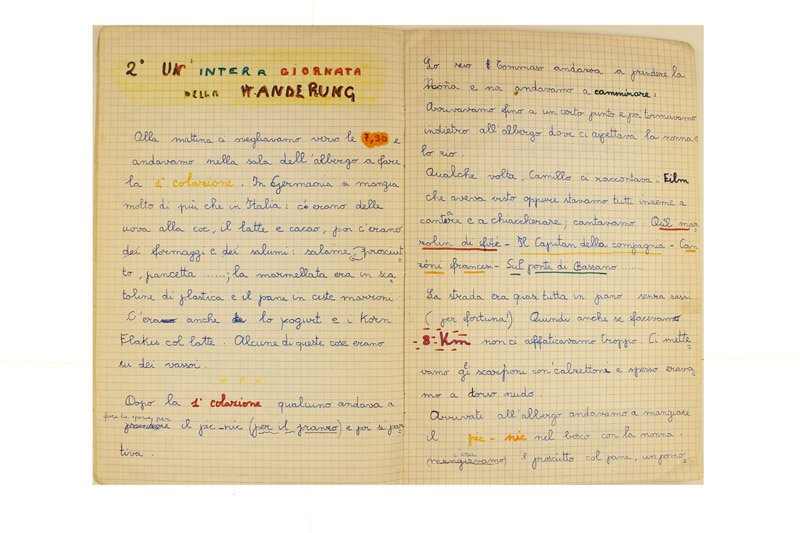 2° UN' INTERA GIORNATA
DELLA WANDERUNG
Alla mattina ci svegliavamo verso le 7,30 e
andavamo nella sala dell'albergo a fare
la 1ª colazione. In Germania si mangia
molto di più che in Italia: c'erano delle
uova alla coc, il latte e cacao, poi c'erano
dei formaggi e dei salumi: salame, prosciut
to, pancetta ......; la marmellata era in sca
toline di plastica e il pane in ceste marroni.
C'era anche lo yogurt e i Korn
Flakes col latte. Alcune di queste cose erano
su dei vassoi.
Dopo la 1ª colazione qualcuno andava a
fare la spesa per
prendere il pic-nic (per il pranzo) e poi si par
tiva.
Lo zio Tommaso andava a prendere la
e noi andavamo a camminare.
Arrivavamo fino a un certo punto e poi tornavamo
indietro all'albergo dove ci aspettava la nonna e
lo zio.
Qualche volta, Camillo ci raccontava i Film
che aveva visto oppure stavamo tutti insieme a
cantare e a chiaccherare; cantavamo: Quel maz
zolin di fiori - Il Capitan della compagnia - Can
zoni francesi - Sul ponte di Bassano ......
La strada era quasi tutta in piano senza sassi
(per fortuna!) Quindi anche se facevamo
8 Km non ci affaticavamo troppo. Ci mette
vamo gli scarponi con calzettone e spesso erava
mo a torso nudo.
Arrivate all'albergo andavamo a mangiare
il pic-nic nel bosco con la nonna.
mangiavamo il prosciutto col pane, un pomo